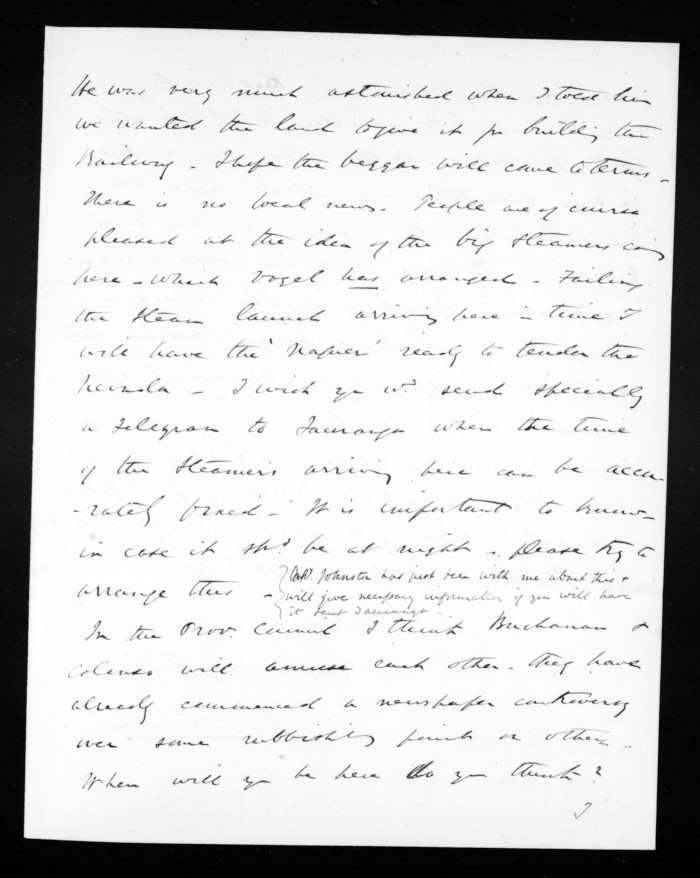 He was very much astonished when I told him
we wanted the land to give it for building the
Railway - I hope the beggar will come to terms -
There is no local news. People are of course
pleased at the idea of the big Steamers coming
here - which Vogel has arranged - Failing
the Steam launch arriving here in time I
will have the 'Napier' ready to tender the
Nevada - I wish you wd. send specially
a Telegram to Tauranga when the time
of the Steamers arriving here can be accu-
-rately fixed - It is important to know -
in case it shd. be at night - please try to
arrange this -
Capt. Johnston has just been with me about this &
will give necessary information if you will have
it sent Tauranga -
In the Prov. Council I think Buchanan &
Colenso will amuse each other - they have
already commenced a newspaper controversy
over some rubbishy point or other -
When will you be here do you think?
I